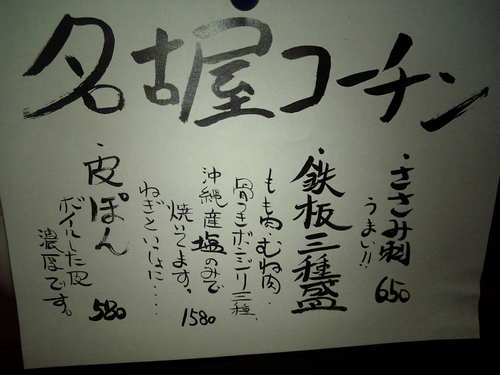 名古屋コーチン
・ささみ刺
うまい!!
650
・鉄板三種盛
もも肉・むね肉・
骨つきボンジリ三種、
沖縄産塩のみで
焼いてます。
ねぎといっしょに・・・・
1580
・皮ぽん
ボイルした皮
濃厚です。
580